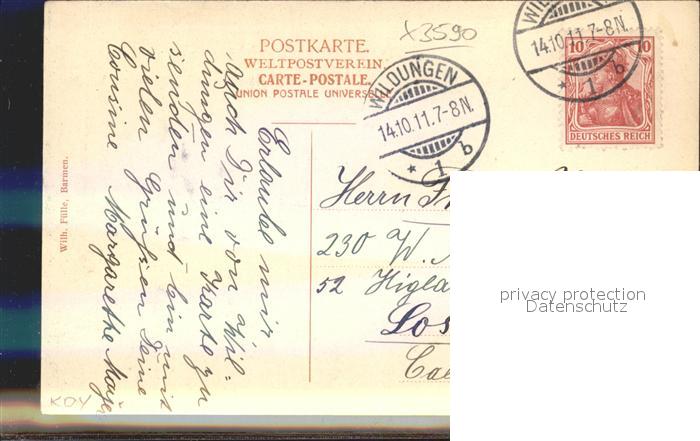 x3590
POSTKARTE.
WELTPOSTVEREIN.
CARTE-POSTALE.
UNION POSTALE UNIVERSELLE
WILDUNGEN
14.10.11.7-8N.
* 1 b
WIL
14.10.11.7-8N.
* 1 b
10 10
DEUTSCHES REICH
Erlaube mir
auch Dir von Wil=
dungen eine Karte zu
senden und bin mit
vielen Grüßen Deine
Cousine Margarethe
Herrn
230 W.
52 Higla
Los
Ca
Wilh. Fülle, Barmen.
KOY
privacy protection
Datenschutz